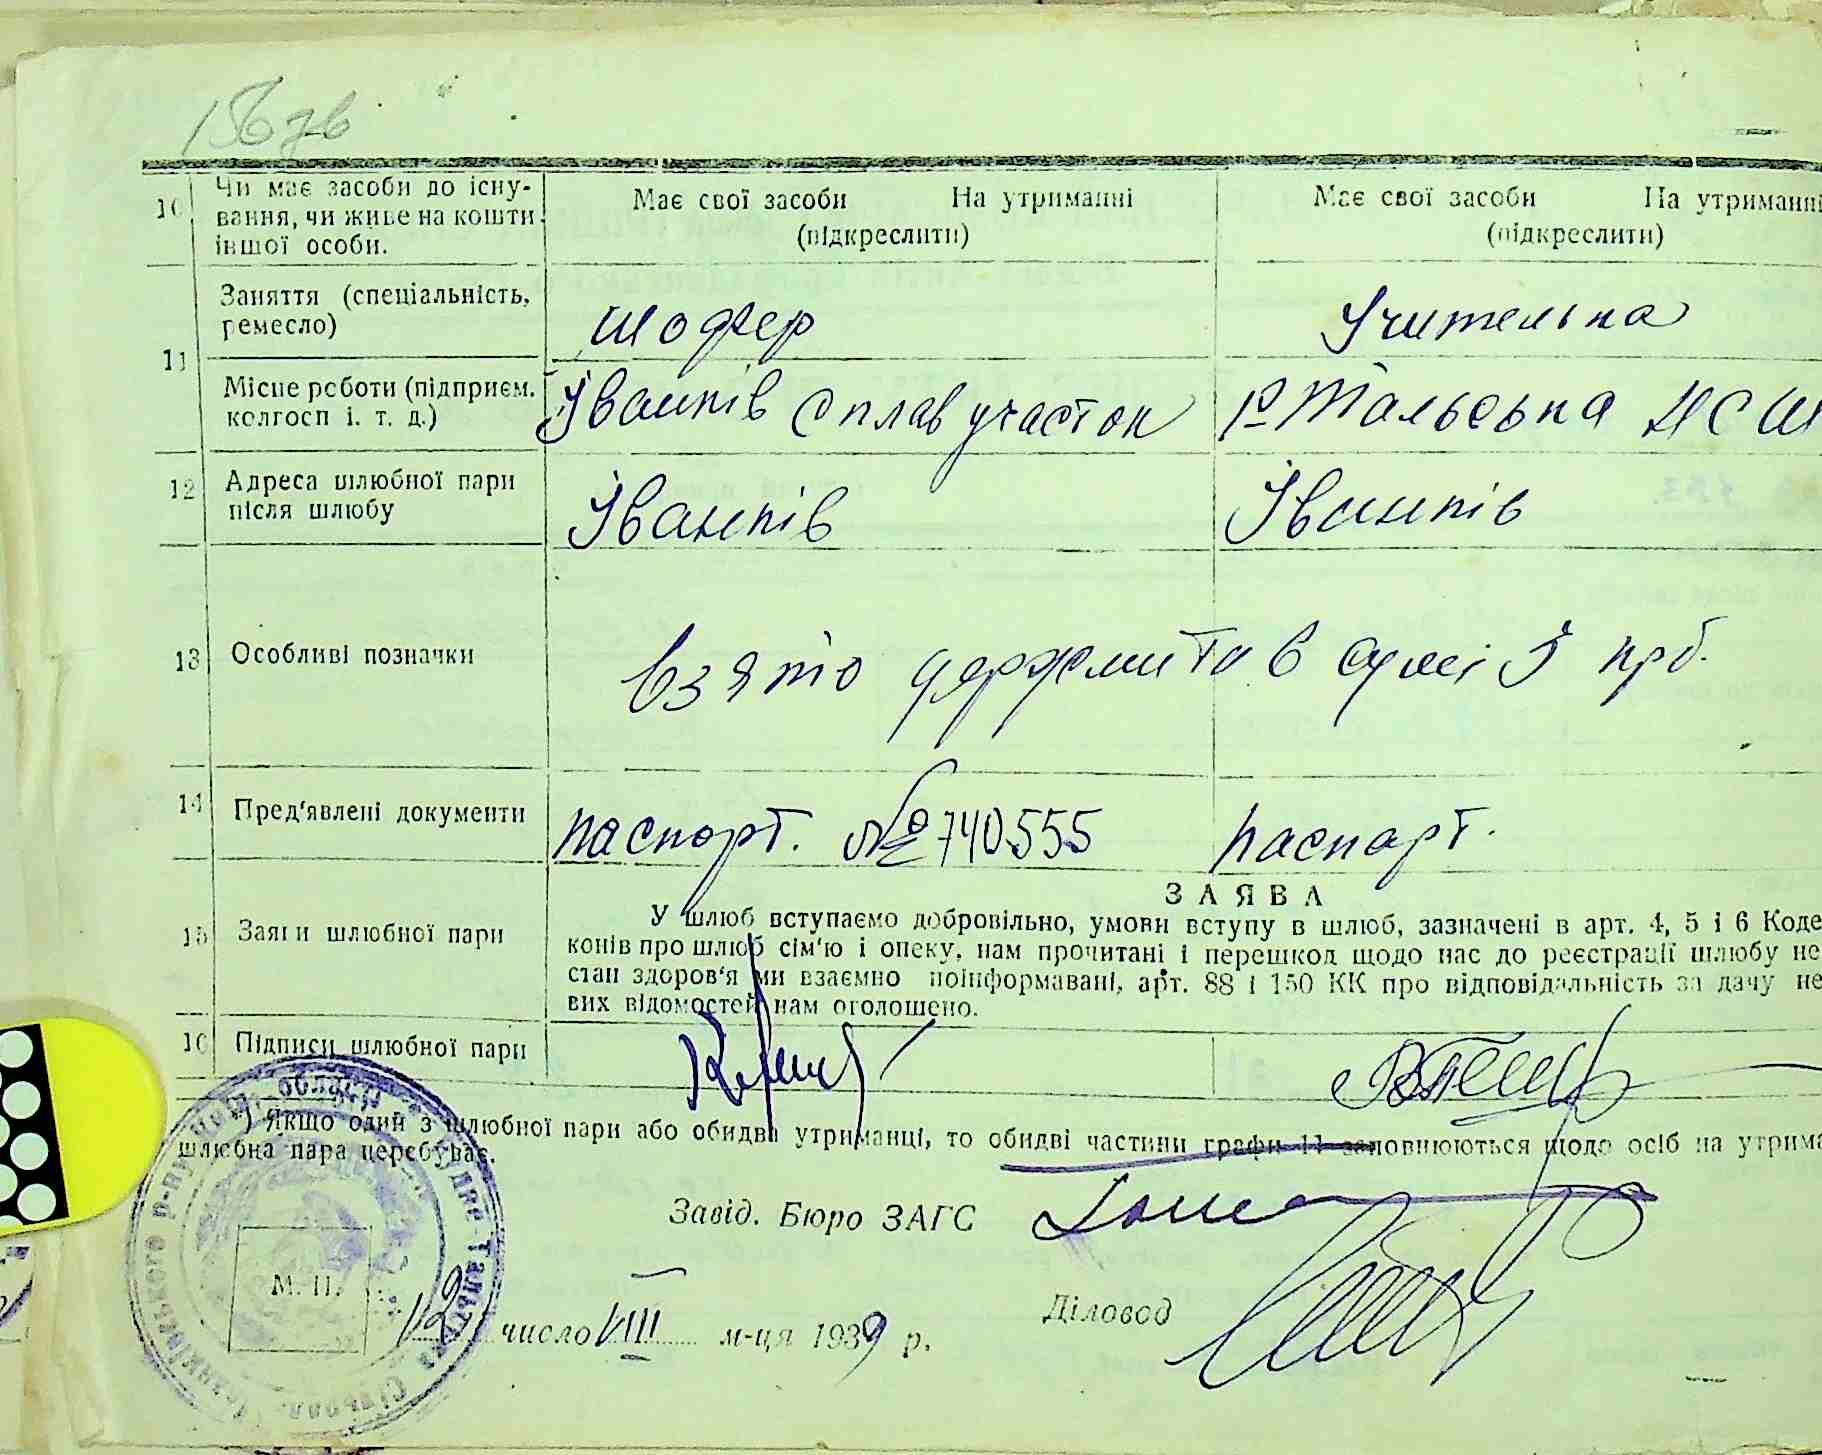 156 зв
10 Чи має засоби до існу-
вання, чи живе на кошти
іншої особи.
Має свої засоби На утриманні
(підкреслити)
Має свої засоби На утриманні
(підкреслити)
11 Заняття (спеціальність,
ремесло)
шофер
Учителька
Місце роботи (підприєм.
колгосп і. т. д.)
Іванків сплав участок
Р-Тальська НСШ
12 Адреса шлюбної пари
після шлюбу
Іванків
Іванків
13 Особливі позначки
Взято держмита в сумі 5 крб.
14 Пред'явлені документи
паспорт. № 740555
паспорт.
15 Заяви шлюбної пари
ЗАЯВА
У шлюб вступаємо добровільно, умови вступу в шлюб, зазначені в арт. 4, 5 і 6 Коде
конів про шлюб сім'ю і опеку, нам прочитані і перешкод щодо нас до реєстрації шлюбу не
стан здоров'я ми взаємно поінформавані, арт. 88 і 150 КК про відповідальність за дачу не
вих відомостей нам оголошено.
16 Підписи шлюбної пари
*) Якщо один з шлюбної пари або обидва утриманці, то обидві частини графи 11 заповнюються щодо осіб на утрима
шлюбна пара перебуває.
Завід. Бюро ЗАГС
М. П.
12 число VIII м-ця 1939 р.
Діловод